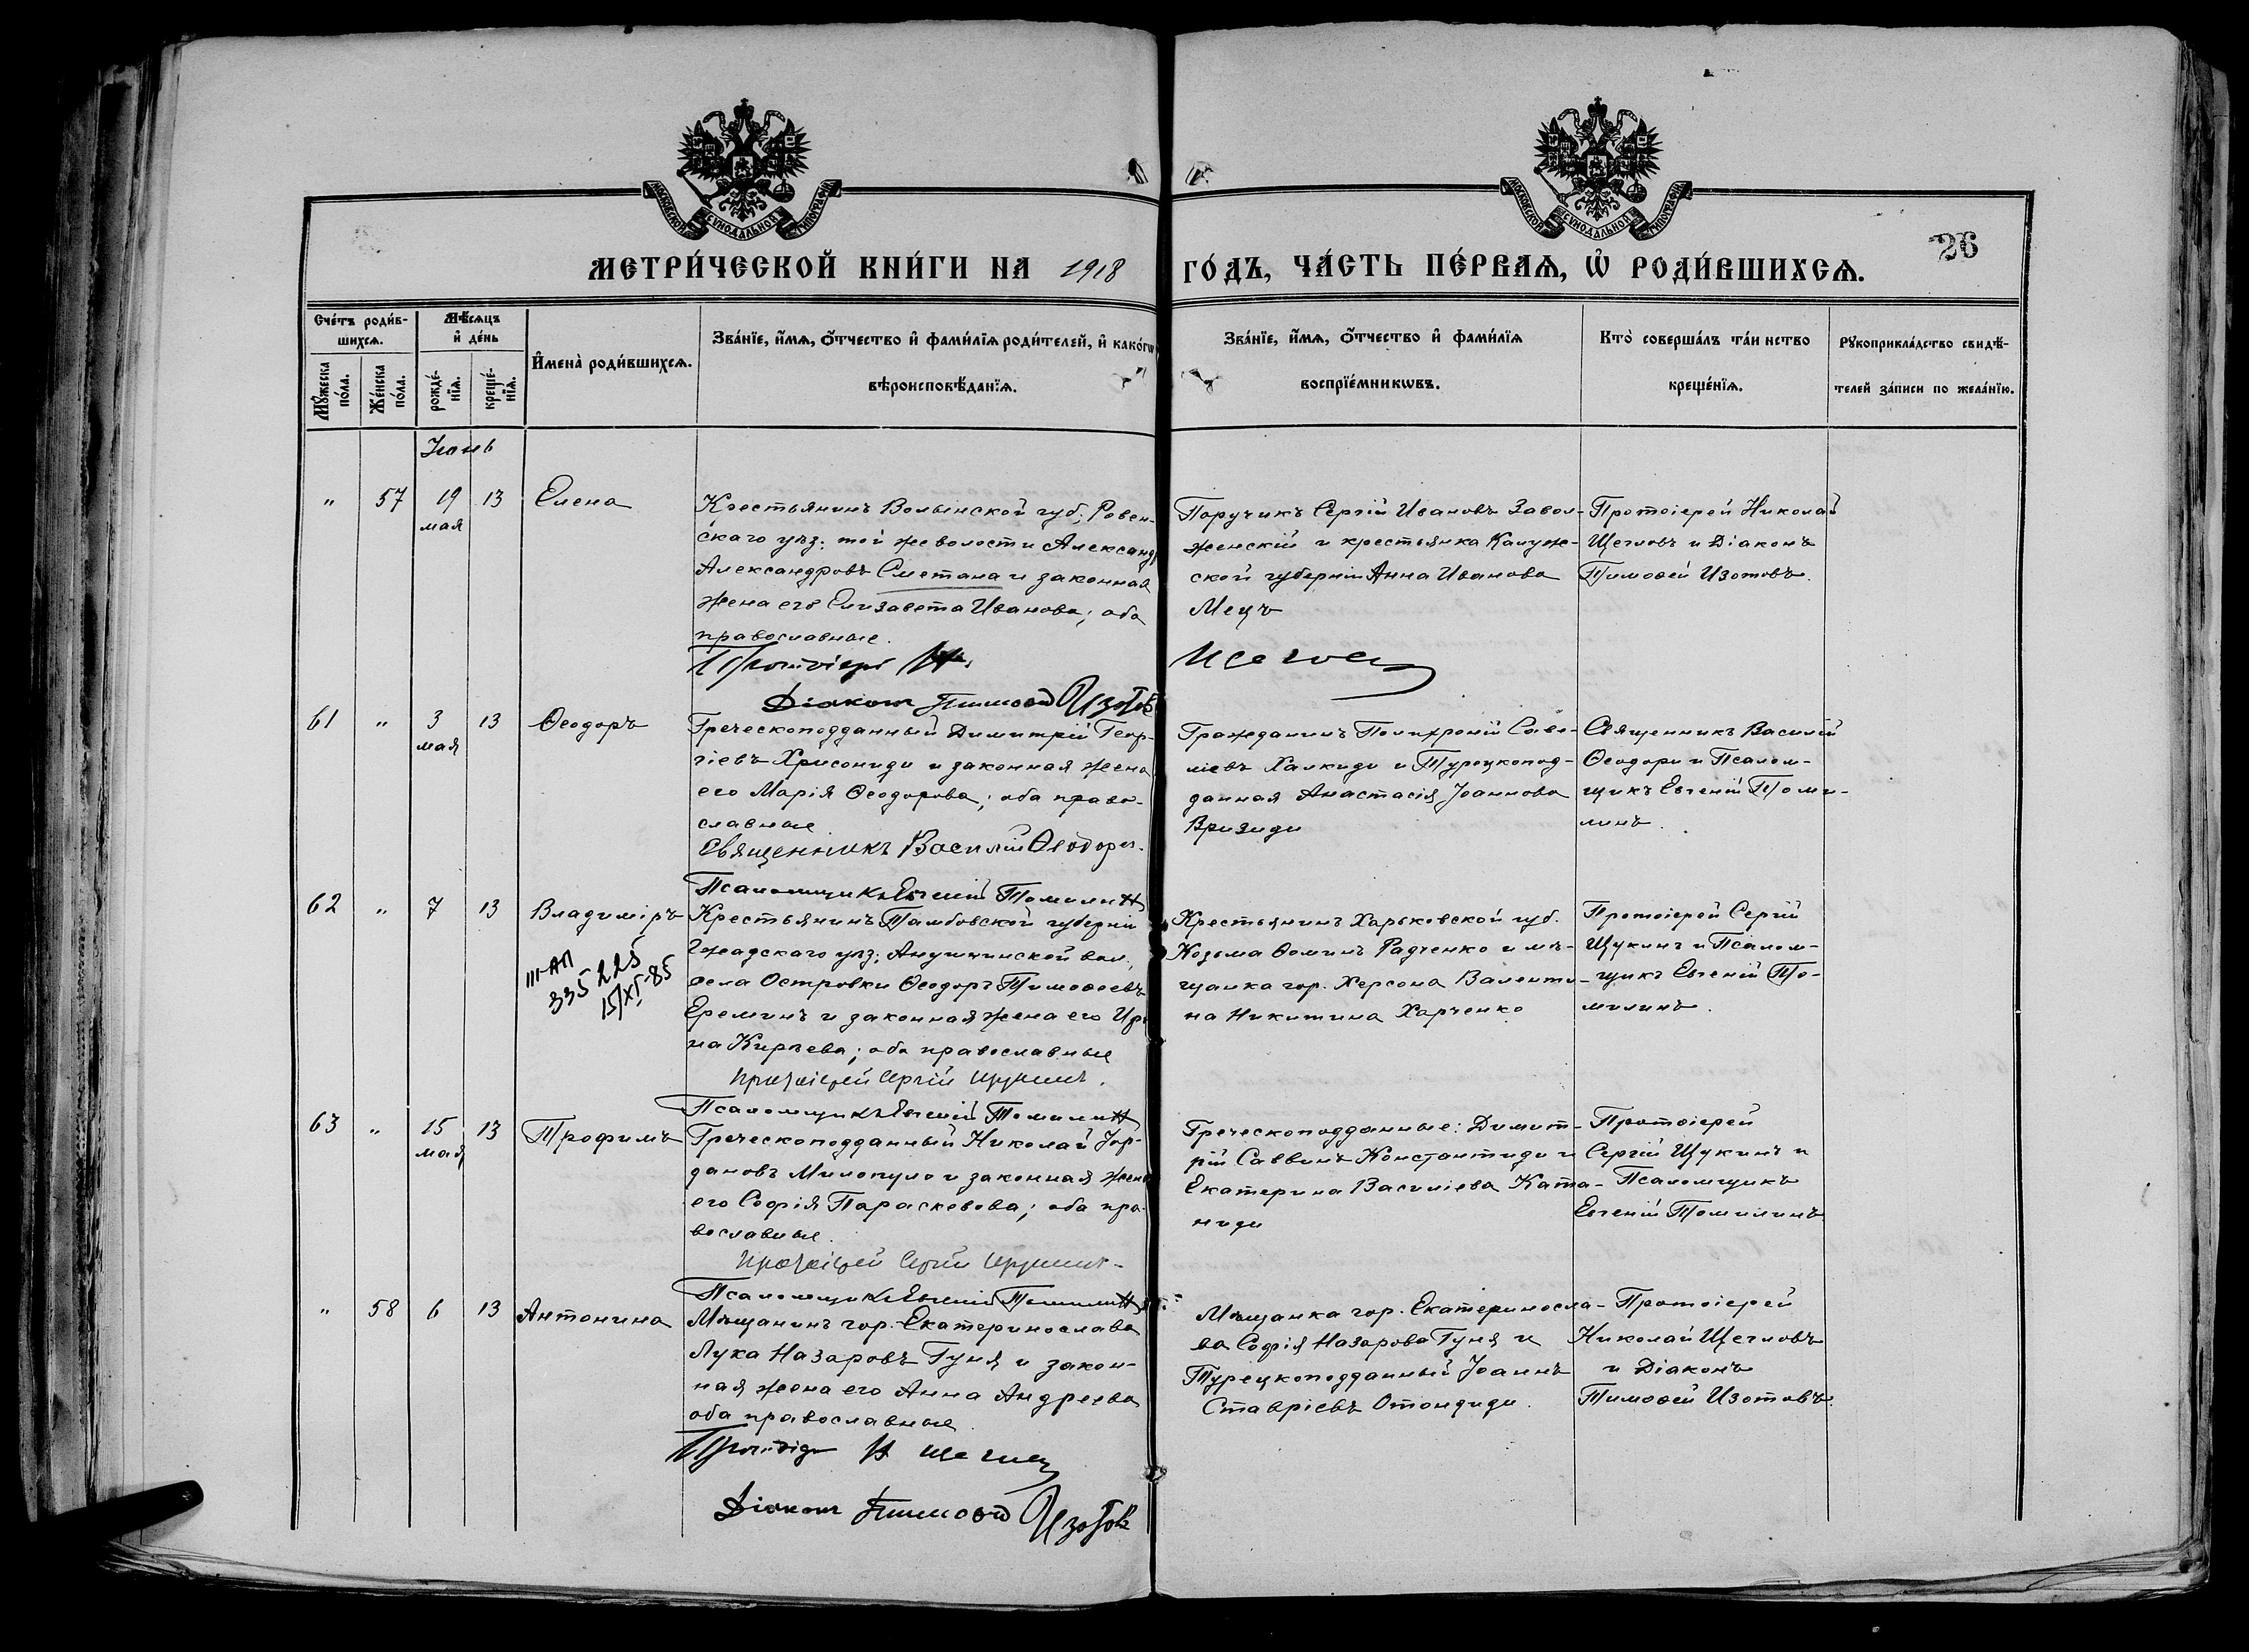 МОСКОВСКОЙ СѴНОДАЛЬНОЙ ТИПОГРАФІИ
МОСКОВСКОЙ СѴНОДАЛЬНОЙ ТИПОГРАФІИ
26
МЕТРИ́ЧЕСКОЙ КНИ́ГИ НА 1918
ГО́ДЪ, ЧА́СТЬ ПЕ́РВАѦ, Ѡ҆ РОДИ́ВШИХСѦ.
Сче́тъ роди́в-
шихсѧ.
Мꙋ́жеска по́ла.
Же́нска по́ла.
Мѣ́сѧцъ
и҆ де́нь
рожде́-
нїѧ.
креще́-
нїѧ.
И҆мена̀ роди́вшихсѧ.
Зва́нїе, и҆́мѧ, ѻ҆́тчество и҆ фами́лїѧ роди́телей, и҆ како́гѡ
вѣроисповѣ́данїѧ.
Зва́нїе, и҆́мѧ, ѻ҆́тчество и҆ фами́лїѧ
воспрїе́мникѡвъ.
Кто̀ соверша́лъ та́инство
креще́нїѧ.
Рꙋкоприкла́дство свидѣ́-
телей за́писи по жела́нїю.
Іюнь
" 57 19 13 Елена
мая
Крестьянинъ Волынской губ; Ровен-
скаго уѣз: той же волости Александр
Александровъ Сметана и законная
жена его Елизавета Иванова; оба
православные.
Протоіерей Н.
Діаконъ Тимоѳей Изотов
Поручикъ Сергій Ивановъ Завол-
женскій и крестьянка Калуж-
ской губерніи Анна Иванова
Мецъ
Щеглов
Протоіерей Николай
Щегловъ и Діаконъ
Тимоѳей Изотовъ.
61 " 3 13 Ѳеодоръ
мая
Греческоподданный Димитрій Геор-
гіевъ Хрисониди и законная жена
его Марія Ѳеодорова; оба право-
славные.
Священникъ Василій Ѳеодори.
Псаломщикъ Евгеній Томилин
Гражданинъ Полихроній Саве-
ліевъ Халкиди и Турецкопод-
данная Анастасія Іоаннова
Вризиди
Священникъ Василій
Ѳеодори и Псалом-
щикъ Евгеній Томи-
линъ.
62 " 7 13 Владиміръ
III-АП
335225
15/XI-85
Крестьянинъ Тамбовской губерніи
уѣз; вол,
села Островки Ѳеодоръ Тимоѳеевъ
Ереминъ и законная жена его Ири
на Кирѣева; оба православные
Протоіерей Сергій Щукинъ.
Псаломщикъ Евгеній Томилин
Крестьянинъ Харьковской губ.
Козьма Ѳоминъ Радченко и мѣ-
щанка гор. Херсона Валенти-
на Никитина Харченко
Протоіерей Сергій
Щукинъ и Псалом-
щикъ Евгеній То-
милинъ.
63 " 15 13 Трофимъ
мая
Греческоподданный Николай Іор-
дановъ Милопуло и законная жена
его Софія Параскевова; оба пра-
вославные.
Протоіерей Сергій Щукинъ
Псаломщикъ Евгеній Томилин
Греческоподданные: Димит-
рій Саввинъ Константиди и
Екатерина Василіева Ката-
ниди
Протоіерей
Сергій Щукинъ и
Псаломщикъ
Евгеній Томилинъ
" 58 6 13 Антонина
Мѣщанинъ гор. Екатеринослава
Лука Назаровъ Гуня и закон-
ная жена его Анна Андреева
оба православные.
Протоіерей Н Щеглов
Діаконъ Тимоѳей Изотов
Мѣщанка гор. Екатериносла-
ва Софія Назарова Гуня и
Турецкоподданный Іоаннъ
Ставріевъ Отондиди.
Протоіерей
Николай Щегловъ
и Діаконъ
Тимоѳей Изотовъ.